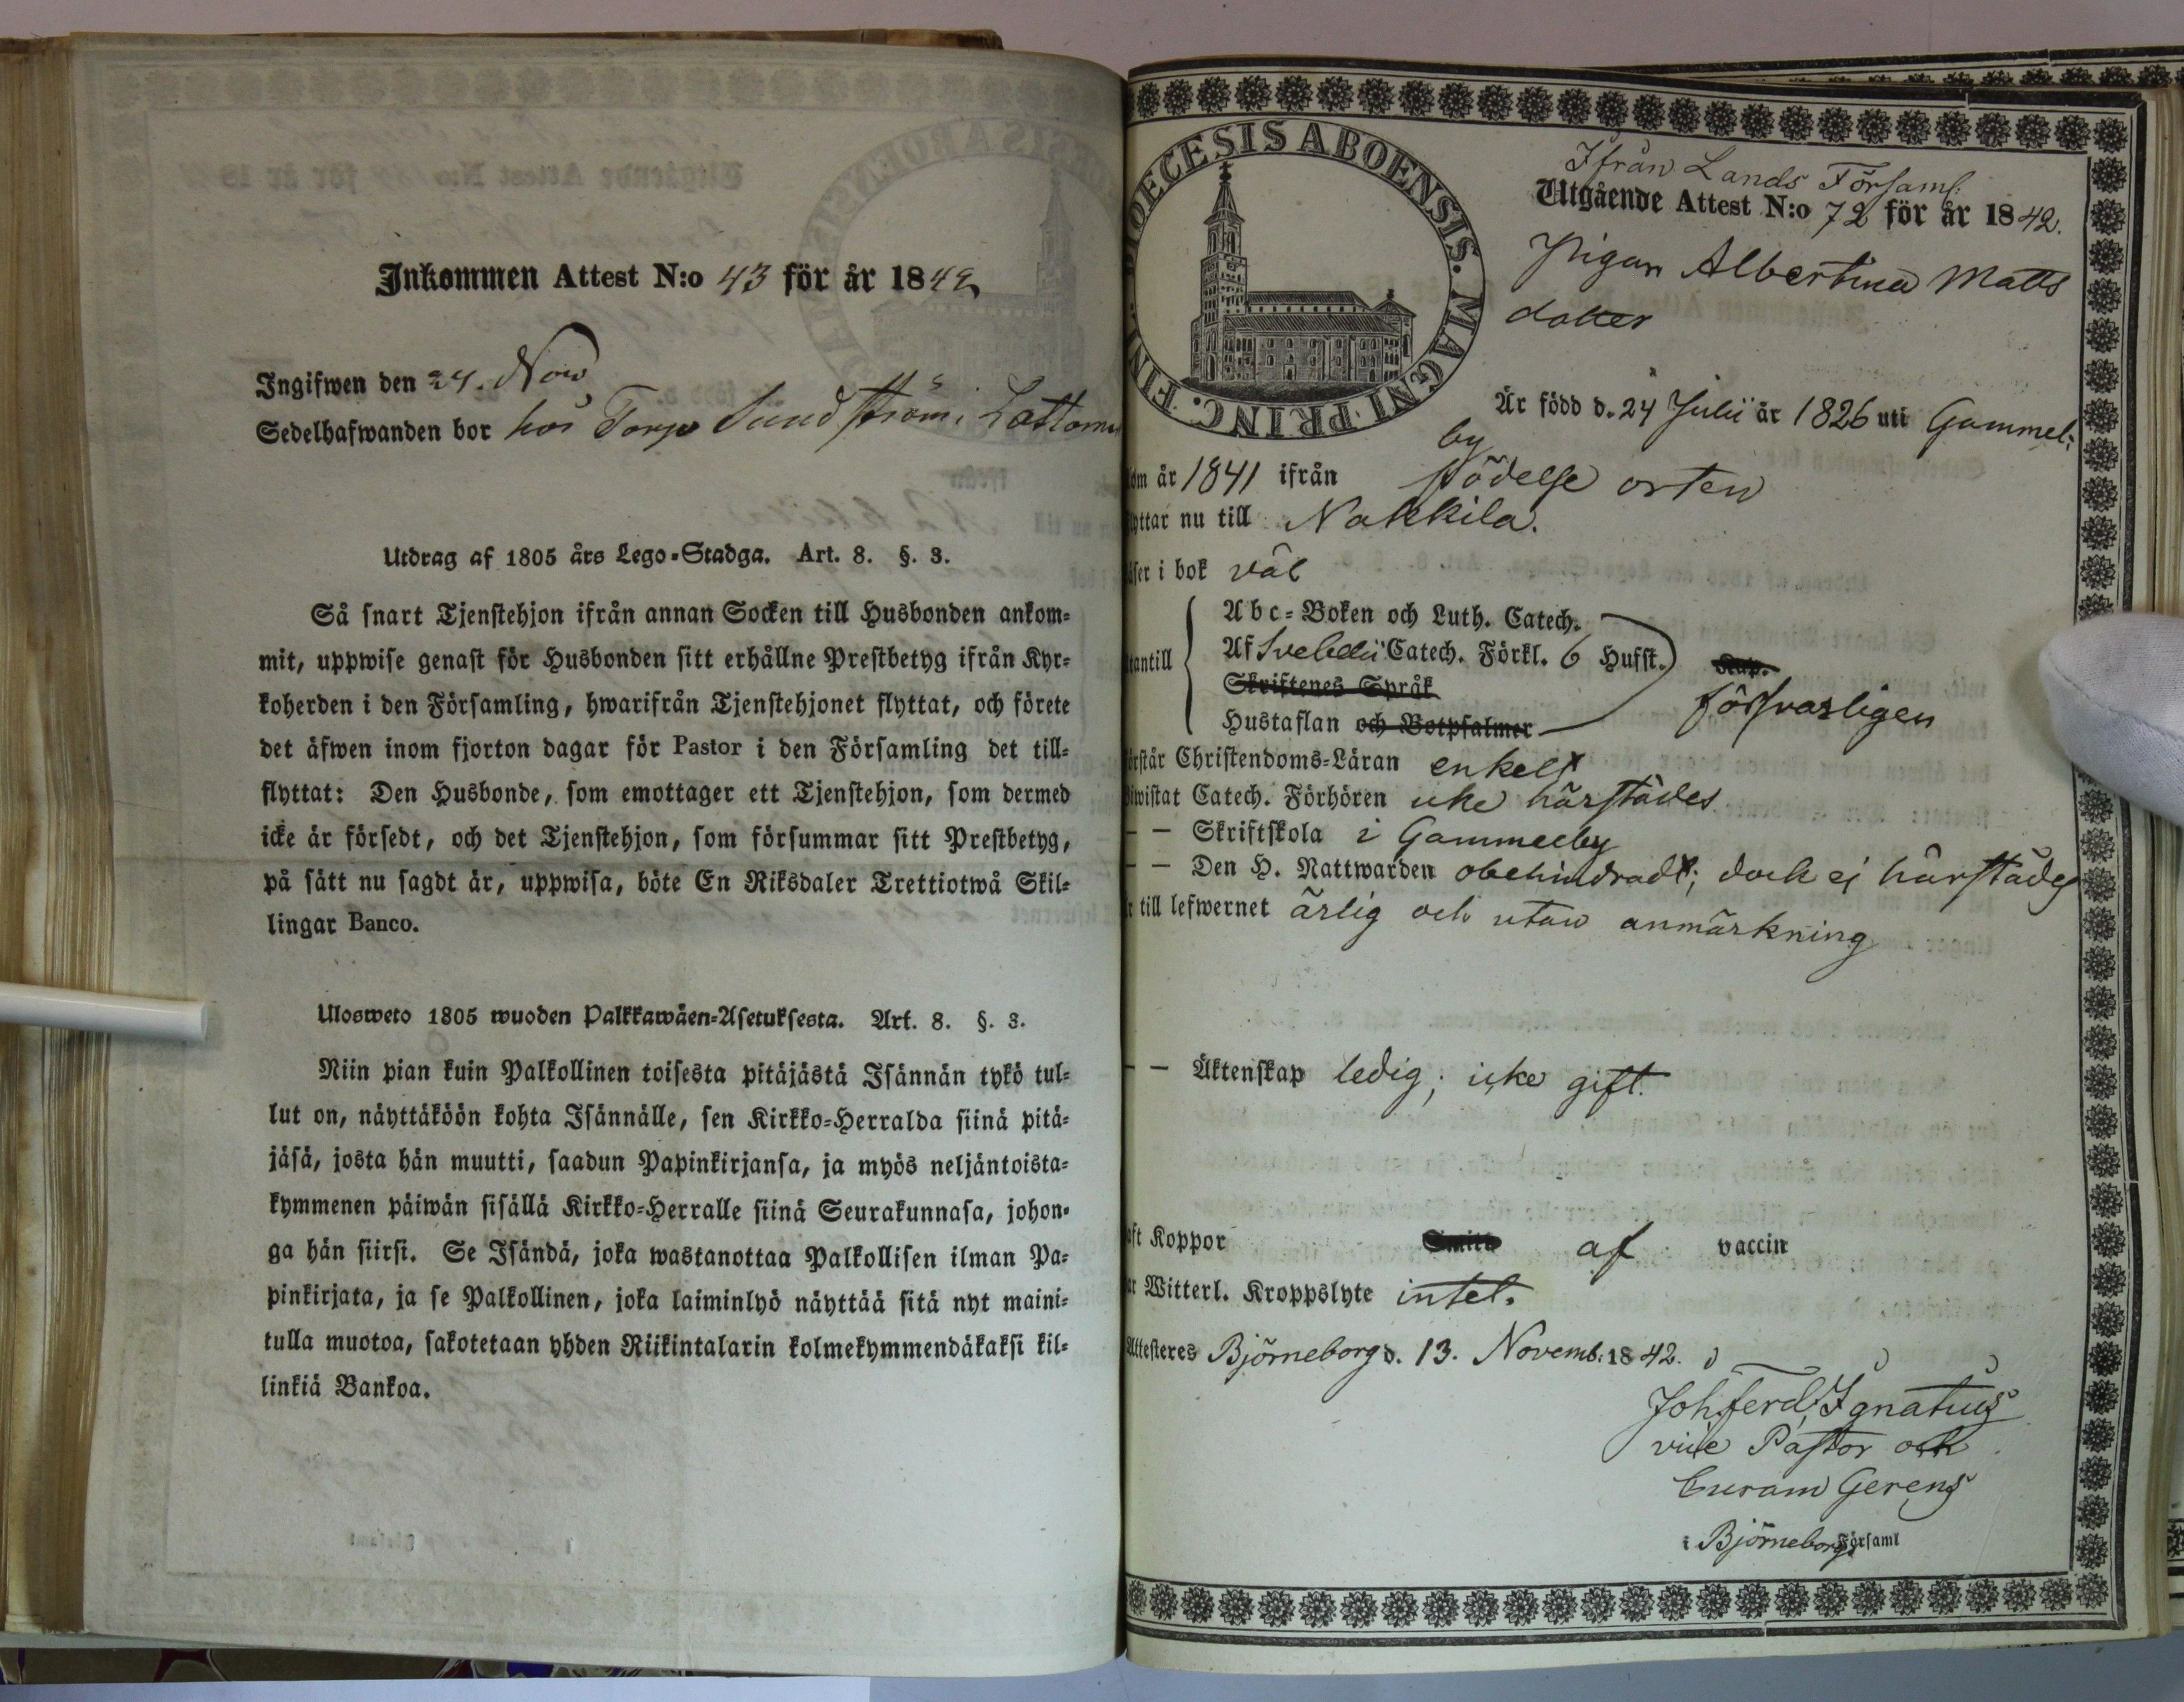 Inkommen Attest N:o 43 för år 1842
Ingifwen den 24. Nov
Sedelhafwanden bor hos Torp Sundström i
Utdrag af 1805 års Lego-Stadga. Art. 8. §. 3.
Så snart Tjenstehjon ifrån annan Socken till Husbonden ankom-
mit, uppwise genast för Husbonden sitt erhållne Prestbetyg ifrån Kyr-
koherden i den Församling, hwarifrån Tjenstehjonet flyttat, och förete
det äfwen inom fjorton dagar för Pastor i den Församling det till-
flyttat: Den Husbonde, som emottager ett Tjenstehjon, som dermed
icke är försedt, och det Tjenstehjon, som försummar sitt Prestbetyg,
på sätt nu sagdt är, uppwisa, böte En Riksdaler Trettiotwå Skil-
lingar Banco.
Ulosweto 1805 wuoden Palkkawäen-Asetuksesta. Art. 8. §. 3.
Niin pian kuin Palkollinen toisesta pitäjästä Isännän tykö tul-
lut on, näyttäköön kohta Isännälle, sen Kirkko-Herralda siinä pitä-
jäsä, josta hän muutti, saadun Papinkirjansa, ja myös neljäntoista-
kymmenen päiwän sisällä Kirkko-Herralle siinä Seurakunnasa, johon-
ga hän siirsi. Se Isändä, joka wastanottaa Palkollisen ilman Pa-
pinkirjata, ja se Palkollinen, joka laiminlyö näyttää sitä nyt maini-
tulla muotoa, sakotetaan yhden Riikintalarin kolmekymmendäkaksi kil-
linkiä Bankoa.
DIOECESIS ABOENSIS. MAGNI PRINC. FIN
Ifrån Lands Församl:
Utgående Attest N:o 72 för år 1842.
Pigan Albertina Matts
dotter
Är född d. 24 Julii år 1826 uti Gammel:
by
om år 1841 ifrån födelse orten
yttar nu till Nakkila.
äser i bok väl
tantill
Abc-Boken och Luth. Catech.
Af Svebelii Catech. Förkl. 6 Hufst. Kap.
Skriftenes Språk
Hustaflan och Botpsalmer
försvarligen
örstår Christendoms-Läran enkelt
iwistat Catech. Förhören icke härstädes
– – Skriftskola i Gammelby
– – Den H. Nattwarden obehindradt; dock ej härstädes
r till lefwernet ärlig och utan anmärkning
– – Äktenskap ledig; icke gift.
aft Koppor af vaccin
ar Witterl. Kroppslyte intet.
Attesteres Björneborg d. 13. Novemb: 1842.
Joh. Ferd. Ignatius
vice Pastor och
Curam Gerens
i Björneborgs Församl